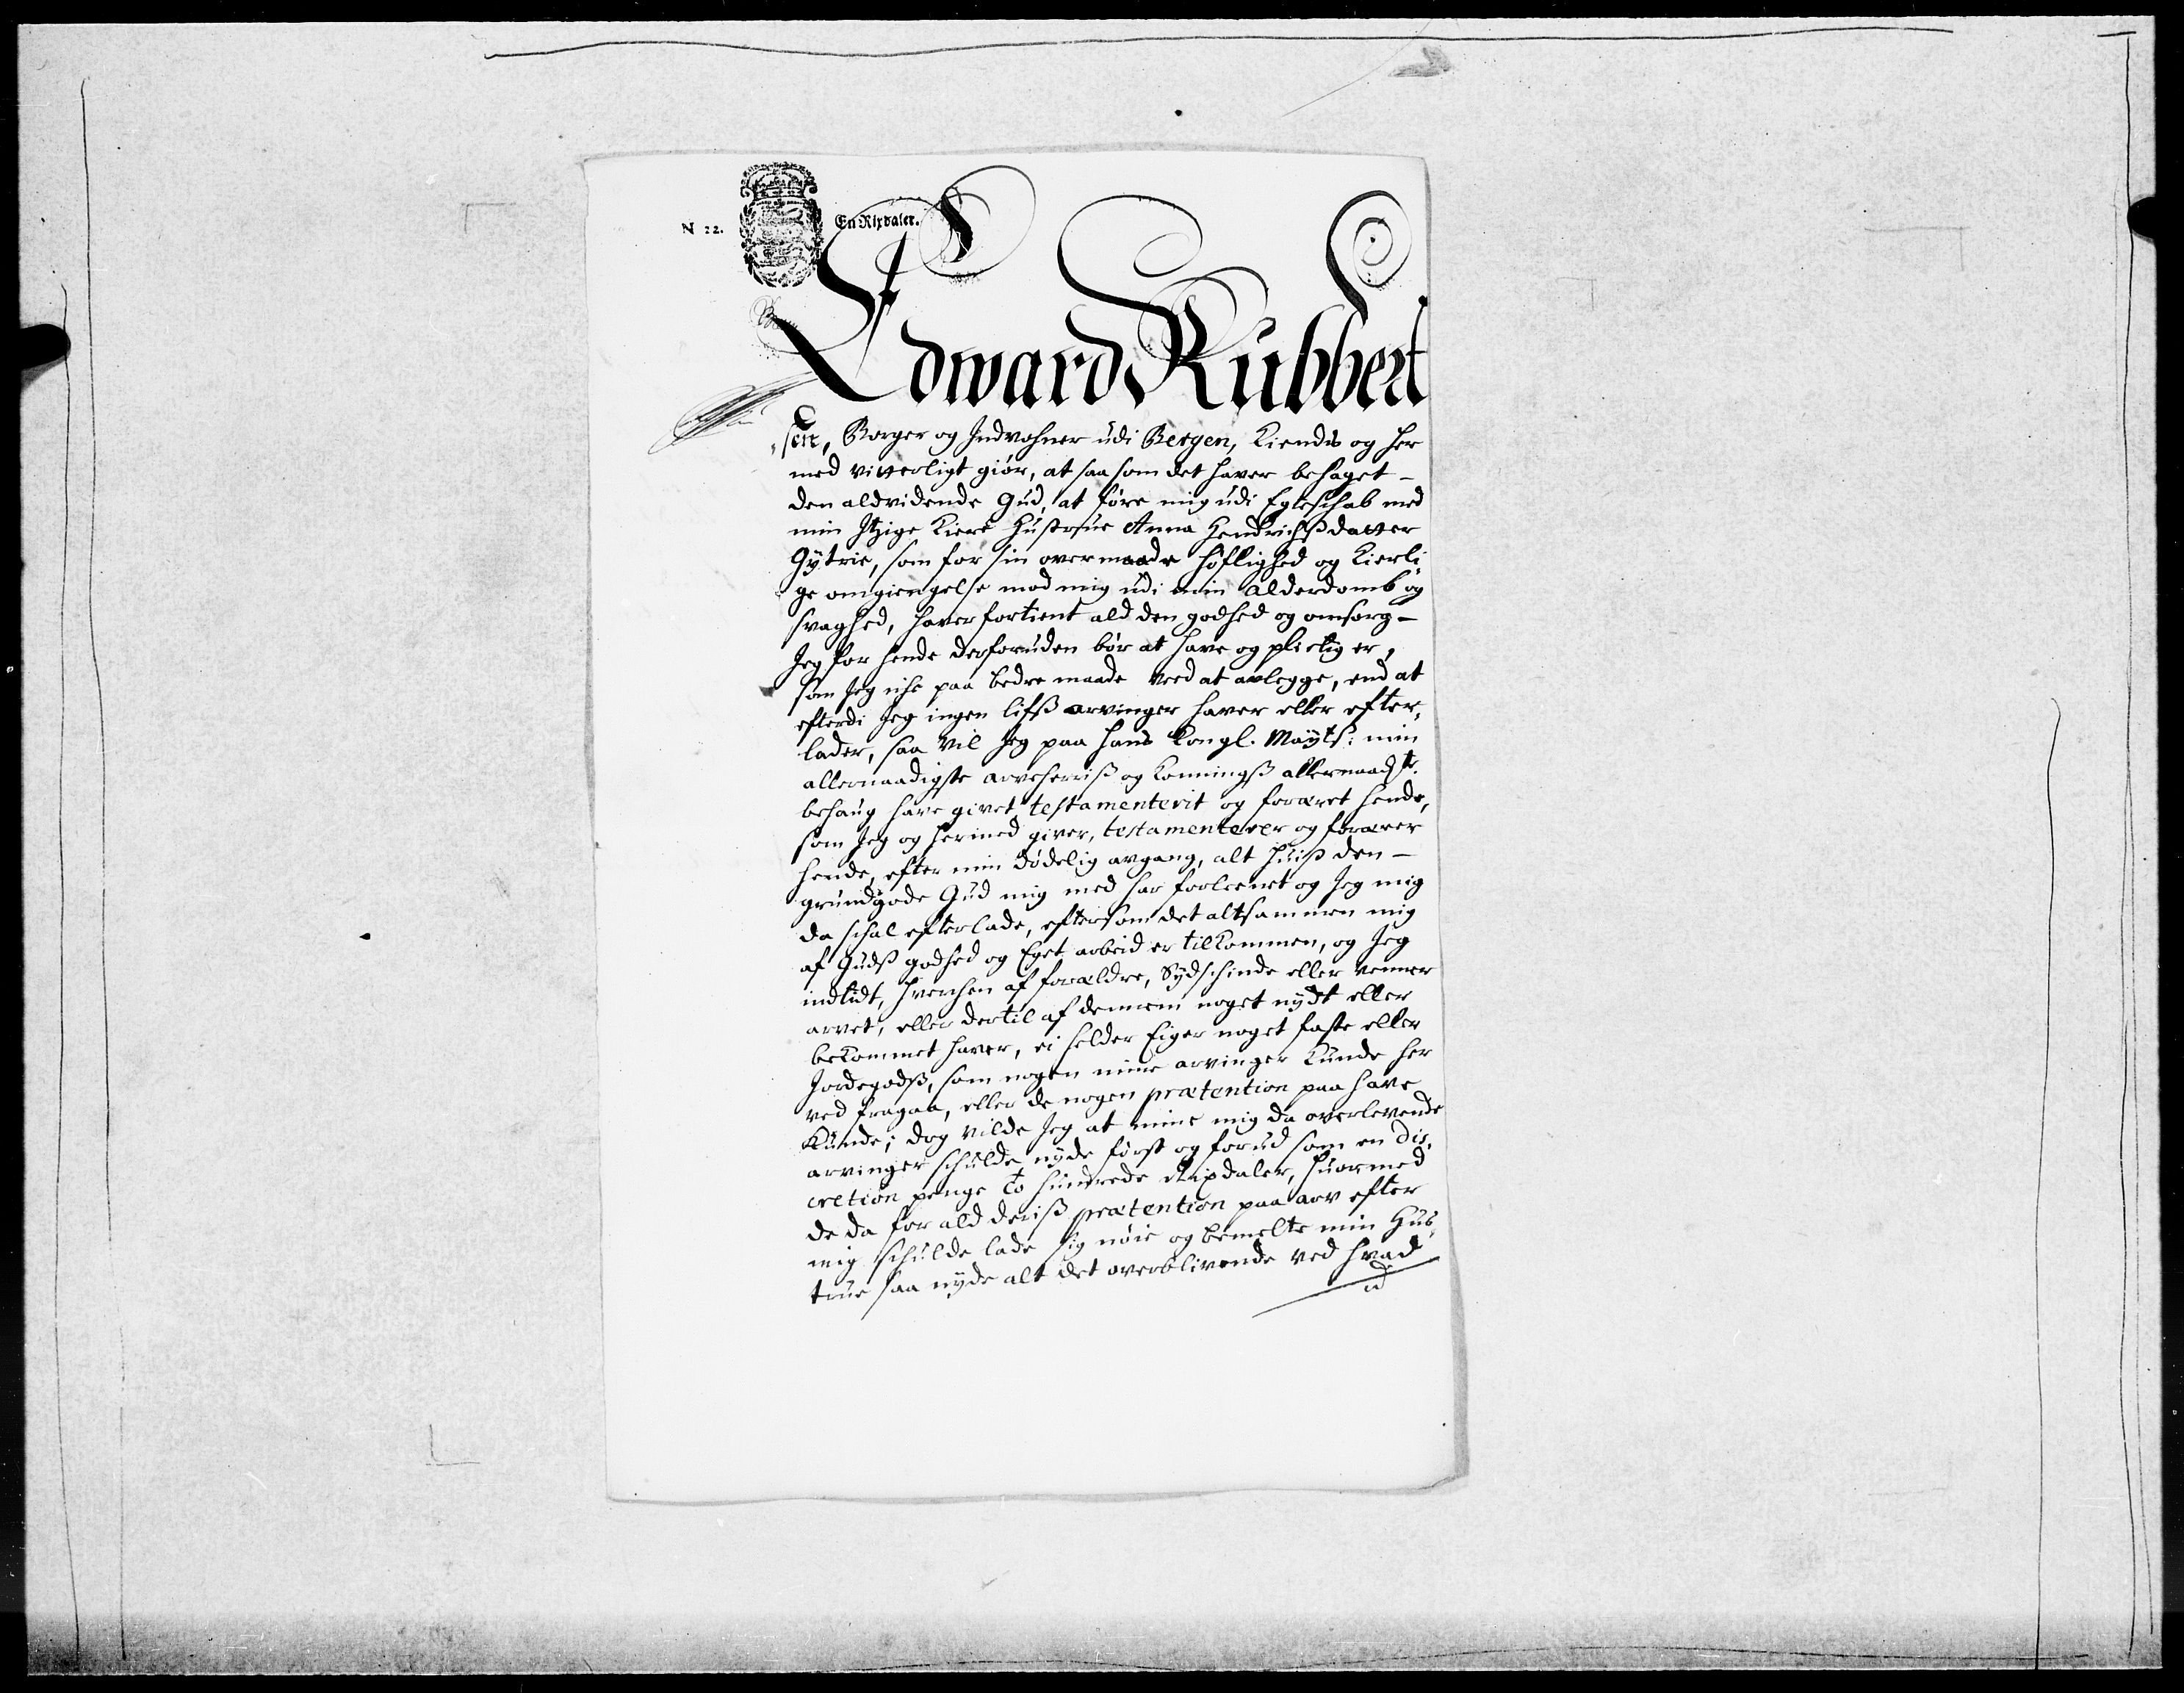 N 22.
En Rixdaler.
Edward Rubbert
sen, Borger og Indvohner udi Bergen, Kiendis og her
med vitterligt giør, at saa som det haver behaget -
den aldvidende Gud, at føre mig udi Egteschab med
min Itzige Kiere Hustrue Anna Hendrichsdatter
Gytrie, som for sin overmaade høflighed og Kierli¸
ge omgiengelse mod mig udi min Alderdomb og
svaghed, haver fortient ald den godhed og omsorg -
Jeg for hende desforuden bør at have og plictig er,
som Jeg iche paa bedre maade veed at avlegge, end at
efterdi Jeg ingen lifß arvinger haver eller efter¸
lader, saa vil Jeg paa hans Kongl. Mayts: min
allernaadigste arveherriß og Konningß allernaadste.
behaug have givet testamenterit og foræret hende,
som Jeg og hermed giver, testamenterer og forærer
hende, efter min dødelig avgang, alt huiß den -
grundgode Gud mig med har forleenet og Jeg mig
da schal efterlade, eftersom det altsammen mig
af Gudß godhed og Eget arbeid er tilkommen, og Jeg
indtidt, hverchen af forældre, Sydschinde eller venner
arvet, eller dertil af dennem noget nydt eller
bekommet haver, ei helder Eiger noget faste eller
Jordegodß, som nogen mine arvinger kunde her
ved fragaa, eller de nogen prætention paa have
kunde; dog vilde Jeg at mine mig da overlevende
arvinger schulde nyde først og forud som en dis¸
cretion penge to hundrede Rixdaler, huormed
de da for ald deriß prætention paa arv efter
mig schulde lade sig nøie og bemelte min Hus¸
true saa nyde alt det overblivende ved hvad